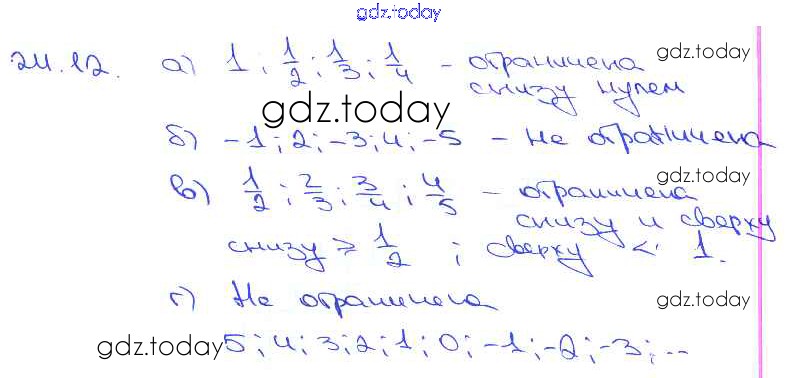 gdz.today
24.12. а) 1 ; 1/2 ; 1/3 ; 1/4 - ограничена gdz.today
снизу нулем
gdz.today
б) -1 ; 2 ; -3 ; 4 ; -5 - не ограничена
в) 1/2 ; 2/3 ; 3/4 ; 4/5 - ограничена gdz.today
снизу и сверху
снизу ≥ 1/2 ; сверху < 1.
г) Не ограничена gdz.today
gdz.today 5 ; 4 ; 3 ; 2 ; 1 ; 0 ; -1 ; -2 ; -3 ; ...